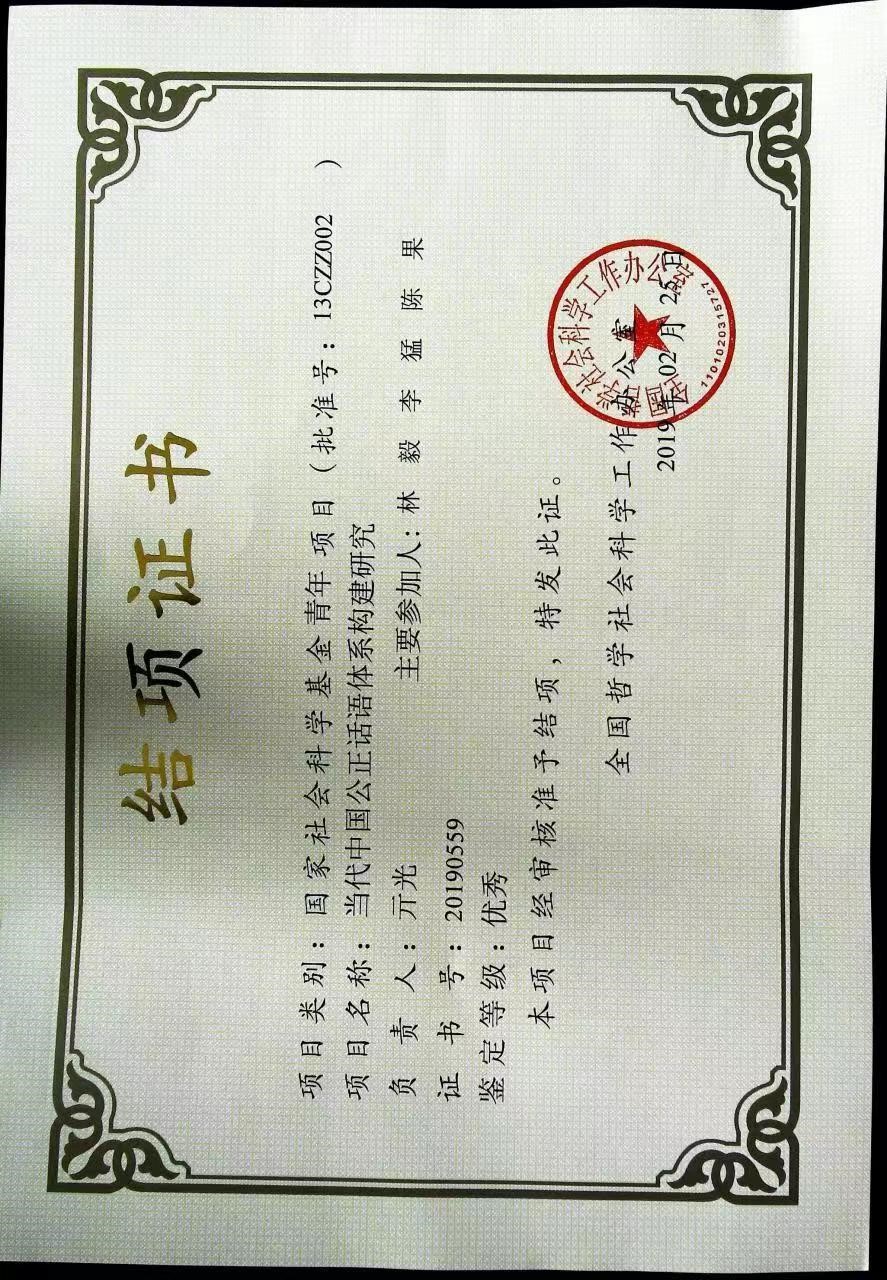 结项证书
项目类别：国家社会科学基金青年项目（批准号：13CZZ002）
项目名称：当代中国公正话语体系构建研究
负责人：亓光 主要参加人：林毅 李猛 陈果
证书号：20190559
鉴定等级：优秀
本项目经审核准予结项，特发此证。
全国哲学社会科学工作办公室
2019年02月25日
全国哲学社会科学工作办公室
1101020315727